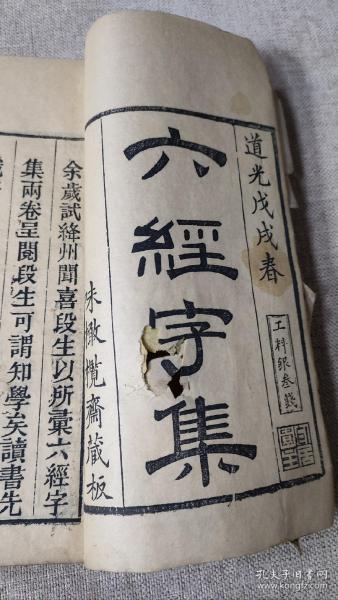 道光戊戌春
工料銀叁錢
六經字集
味橄欖齋藏板
余歲試絳州聞喜段生以所彙六經字
集兩卷呈閱段生可謂知學矣讀書先
孔夫子旧书网